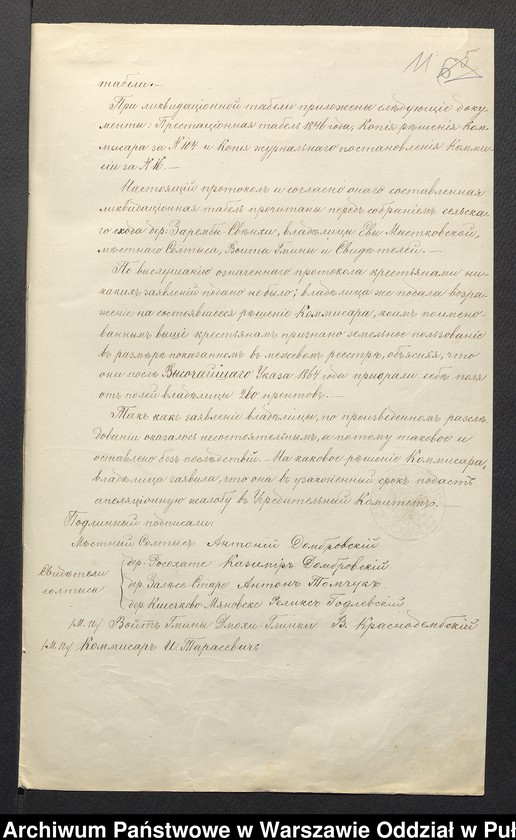 11 5
табели.—
При ликвидаціонной табели приложены слѣдующіе доку-
менты: Престаціонная табель 1846 года, Копія рѣшенія Ком-
мисара за № 104 и Копія журнальнаго постановленія Комми-
сіи за № 16.—
Настоящій протоколъ и согласно онаго составленная
ликвидаціонная табель прочитаны передъ собраніемъ сельска-
го схода дер. Зарембы Свѣнхи, владѣлицы Евы Мыстковской,
мѣстнаго Солтыса, Войта Гмины и Свидѣтелей.—
По выслушанію означеннаго протокола крестьянами ни-
какихъ заявленій подано не было; владѣлица же подала возра-
женіе на состоявшееся рѣшеніе Коммисара, коимъ поимено-
ваннымъ выше крестьянамъ признано земельное пользованіе
въ размѣрѣ показанномъ въ межевомъ реестрѣ, объясняя, что
они послѣ Высочайшаго Указа 1864 года приорали себѣ поля
отъ полей владѣлицы 260 прентовъ.—
Такъ какъ заявленіе владѣлицы, по произведенномъ разслѣ-
дованіи оказалось несостоятельнымъ, а потому таковое и
оставлено безъ послѣдствій.— На каковое рѣшеніе Коммисара,
владѣлица заявила, что она въ узаконенный срокъ подастъ
апеляціонную жалобу въ Учредительный Комитетъ.—
Подлинный подписали:
Мѣстный Солтысъ Антоній Домбровскій
Свидѣтели солтысы
дер. Росохате Казиміръ Домбровскій
дер. Залѣсе-Старе Антонъ Томчукъ
дер. Кшечково Мяновске Феликсъ Годлевскій
/М.П/ Войтъ Гмины Дмохи-Глинки В. Краснодембскій
/М.П/ Коммисаръ И. Тарасевичъ
Archiwum Państwowe w Warszawie Oddział w Puł